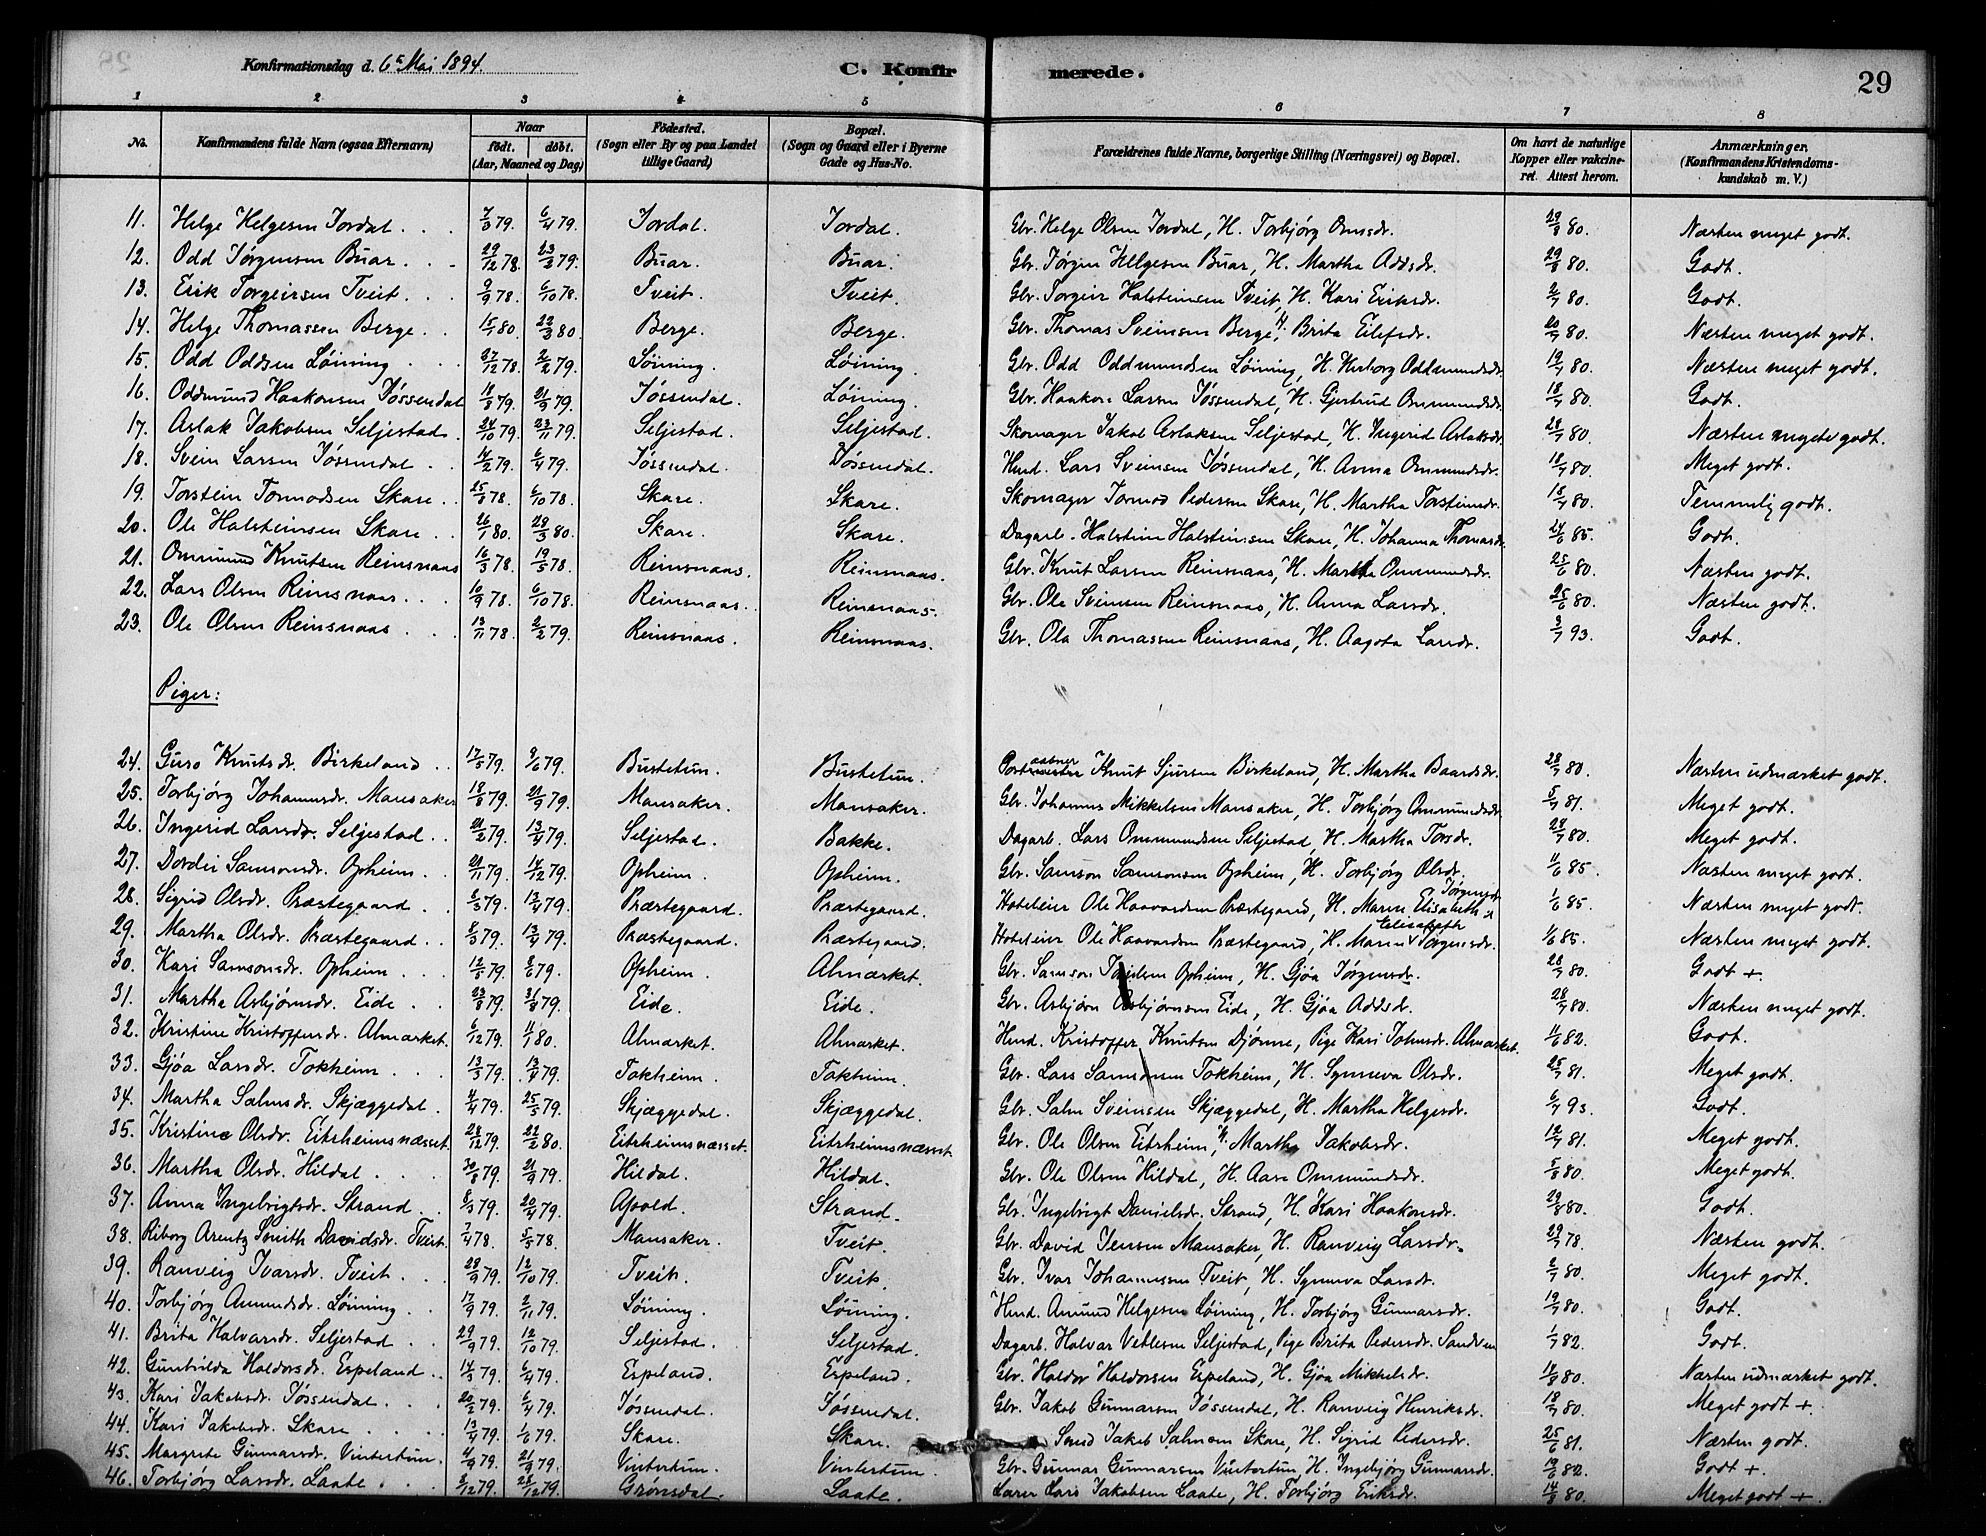 Konfirmationsdag d. 6te Mai 1894. C. Konfirmerede. 29
1 2 3 4 5 6 7 8
No. Konfirmandens fulde Navn (ogsaa Efternavn) Naar födt. döbt. (Aar, Maaned og Dag) Födested. (Sogn eller By og paa Landet tillige Gaard) Bopæl. (Sogn og Gaard eller i Byerne Gade og Hus-No. Forældrenes fulde Navne, borgerlige Stilling (Næringsvei) og Bopæl. Om havt de naturlige Kopper eller vakcineret. Attest herom. Anmærkninger. (Konfirmandens Kristendomskundskab m. V.)
11. Helge Helgesen Jordal. 7/3 79. 6/4 79. Jordal. Jordal. Gbr. Helge Olsen Jordal, H. Torbjörg Omsdr. 29/8 80. Næsten meget godt.
12. Odd Jørgensen Buar. 29/12 78. 23/3 79. Buar. Buar. Gbr. Jørgen Helgesen Buar, H. Martha Addsdr. 29/8 80. Godt.
13. Erik Torgeirsen Tveit. 9/9 78. 6/10 78. Tveit. Tveit. Gbr. Torgeir Halsteinsen Tveit, H. Kari Eriksdr. 2/7 80. Godt.
14. Helge Thomassen Berge. 15/1 80. 22/3 80. Berge. Berge. Gbr. Thomas Sveinsen Berge, H. Brita Eilefsdr. 20/7 80. Næsten meget godt.
15. Odd Oddsen Løining. 27/12 78. 2/2 79. Løining. Løining. Gbr. Odd Oddmundsen Løining, H. Herborg Oddmundsdr. 19/7 80. Næsten meget godt.
16. Oddmund Haakonsen Jøssendal 18/8 79. 21/9 79. Jøssendal. Løining. Gbr. Haakon Larsen Jøssendal, H. Gjertrud Ommundsdr. 18/7 80. Godt.
17. Aslak Jakobsen Seljestad. 24/10 79. 23/11 79. Seljestad. Seljestad. Skomager Jakob Aslaksen Seljestad, H. Ingerid Aslaksdr. 28/7 80. Næsten meget godt.
18. Svein Larsen Jøssendal. 4/2 79. 6/4 79. Jøssendal. Jøssendal. Hmd. Lars Sveinsen Jøssendal, H. Anna Ommundsdr. 18/7 80. Meget godt.
19. Torstein Tormodsen Skare. 25/8 78. 6/10 78. Skare. Skare. Skomager Tormod Pedersen Skare, H. Martha Torsteinsdr. 18/7 80. Temmelig godt.
20. Ole Halsteinsen Skare. 26/1 80. 28/3 80. Skare. Skare. Dagarb. Halstein Halsteinsen Skare, H. Johanna Thomasdr. 24/6 85. Godt.
21. Ommund Knutsen Reinsnaas 16/3 78. 19/5 78. Reinsnaas. Reinsnaas. Gbr. Knut Larsen Reinsnaas, H. Martha Ommundsdr. 25/6 80. Næsten godt.
22. Lars Olsen Reinsnaas. 10/9 78. 6/10 78. Reinsnaas. Reinsnaas. Gbr. Ola Sveinsen Reinsnaas, H. Anna Larsdr. 25/6 80. Næsten godt.
23. Ole Olsen Reinsnaas. 13/11 78. 2/2 79. Reinsnaas. Reinsnaas. Gbr. Ola Thomassen Reinsnaas, H. Aagota Larsdr. 3/7 93. Godt.
Piger:
24. Guro Knutsdr. Birkeland. 17/5 79. 9/6 79. Bustetun. Bustetun. Postaabner Knut Sjursen Birkeland, H. Martha Baardsdr. 28/7 80. Næsten udmærket godt.
25. Torbjörg Johannesdr. Mansaker 18/8 79. 21/9 79. Mansaker. Mansaker. Gbr. Johannes Mikkelsen Mansaker, H. Torbjörg Ommundsdr. 5/7 81. Meget godt.
26. Ingerid Larsdr. Seljestad. 21/2 79. 13/4 79. Seljestad. Bakke. Dagarb. Lars Ommundsen Seljestad, H. Martha Torsdr. 28/7 80. Meget godt.
27. Dordei Samsonsdr. Opheim. 21/11 79. 14/12 79. Opheim. Opheim. Gbr. Samson Samsonsen Opheim, H. Torbjörg Olsdr. 11/6 85. Næsten meget godt.
28. Sigrid Olsdr. Præstegaard. 8/3 79. 13/4 79. Præstegaard. Præstegaard. Hoteleier Ole Haavardsen Præstegaard, H. Maren Elisabeth Jørgensdr. 1/6 85. Næsten meget godt.
29. Martha Olsdr. Præstegaard. 8/3 79. 13/4 79. Præstegaard. Præstegaard. Hoteleier Ole Haavardsen Præstegaard, H. Maren Elisabeth Jørgensdr. 1/6 85. Næsten meget godt.
30. Kari Samsonsdr. Opheim. 12/5 79. 8/6 79. Opheim. Almærket. Gbr. Samson Opheim, H. Gjøa Jørgensdr. 28/7 80. Godt +
31. Martha Asbjørnsdr. Eide. 23/8 79. 31/8 79. Eide. Eide. Gbr. Asbjørn Asbjørnsen Eide, H. Gjøa Addsdr. 28/7 80. Næsten meget godt.
32. Kristine Kristoffersdr. Almærket. 6/12 79. 11/1 80. Almærket. Almærket. Hmd. Kristoffer Knutsen Djønne, Pige Kari Johnsdr. Almærket. 11/6 82. Godt.
33. Gjøa Larsdr. Tokheim. 13/3 79. 13/4 79. Tokheim. Tokheim. Gbr. Lars Samsonsen Tokheim, H. Synneva Olsdr. 25/7 81. Meget godt.
34. Martha Salmsdr. Skjæggedal. 4/4 79. 25/5 79. Skjæggedal. Skjæggedal. Gbr. Salm Sveinsen Skjæggedal, H. Martha Helgesdr. 6/7 93. Godt.
35. Kristine Olsdr. Eitrheimsnæsset. 28/12 79. 22/2 80. Eitrheimsnæsset. Eitrheimsnæsset. Gbr. Ole Olsen Eitrheim, H. Martha Jakobsdr. 12/7 81. Meget godt.
36. Martha Olsdr. Hildal. 30/8 79. 21/9 79. Hildal. Hildal. Gbr. Ole Olsen Hildal, H. Aasa Ommundsdr. 5/8 80. Meget godt.
37. Anna Ingebrigtsdr. Strand. 8/3 79. 20/4 79. Apold. Strand. Gbr. Ingebrigt Danielsdr. Strand, H. Kari Haakonsdr. 29/8 80. Godt.
38. Riborg Arentz Smith Davidsdr. Tveit. 7/4 78. 5/5 78. Mansaker. Tveit. Gbr. David Jensen Mansaker, H. Ranveig Larsdr. 29/7 78. Næsten godt.
39. Ranveig Ivarsdr. Tveit. 28/9 79. 12/10 79. Tveit. Tveit. Gbr. Ivar Johannessen Tveit, H. Synneva Larsdr. 2/7 80. Meget godt.
40. Torbjörg Amundsdr. Løining. 17/9 79. 2/11 79. Løining. Løining. Hmd. Amund Helgesen Løining, H. Torbjörg Gunnarsdr. 19/7 80. Godt.
41. Brita Halvarsdr. Seljestad. 29/9 79. 12/10 79. Seljestad. Seljestad. Dagarb. Halvar Vetlesen Seljestad, Pige Brita Pedersdr. Sandven 1/7 82. Godt.
42. Gunhilda Haldorsdr. Espeland. 14/3 79. 6/4 79. Espeland. Espeland. Gbr. Haldor Haldorsen Espeland, H. Gjøa Mikkelsdr. 14/8 80. Næsten udmærket godt.
43. Kari Jakobsdr. Jøssendal. 20/2 79. 6/4 79. Jøssendal. Jøssendal. Gbr. Jakob Gunnarsen Jøssendal, H. Ranveig Henriksdr. 18/7 80. Meget godt +.
44. Kari Jakobsdr. Skare. 13/4 79. 1/6 79. Skare. Skare. Smed Jakob Salmsen Skare, H. Sigrid Pedersdr. 25/6 81. Næsten godt.
45. Margrete Gunnarsdr. Vintertun. 4/9 79. 21/9 79. Vintertun. Vintertun. Gbr. Gunnar Gunnarsen Vintertun, H. Ingebjörg Gunnarsdr. 19/6 82. Godt +.
46. Torbjörg Larsdr. Laate. 8/12 79. 28/12 79. Grønsdal. Laate. Lærer Lars Jakobsen Laate, H. Torbjörg Eriksdr. 14/8 80. Meget godt +.